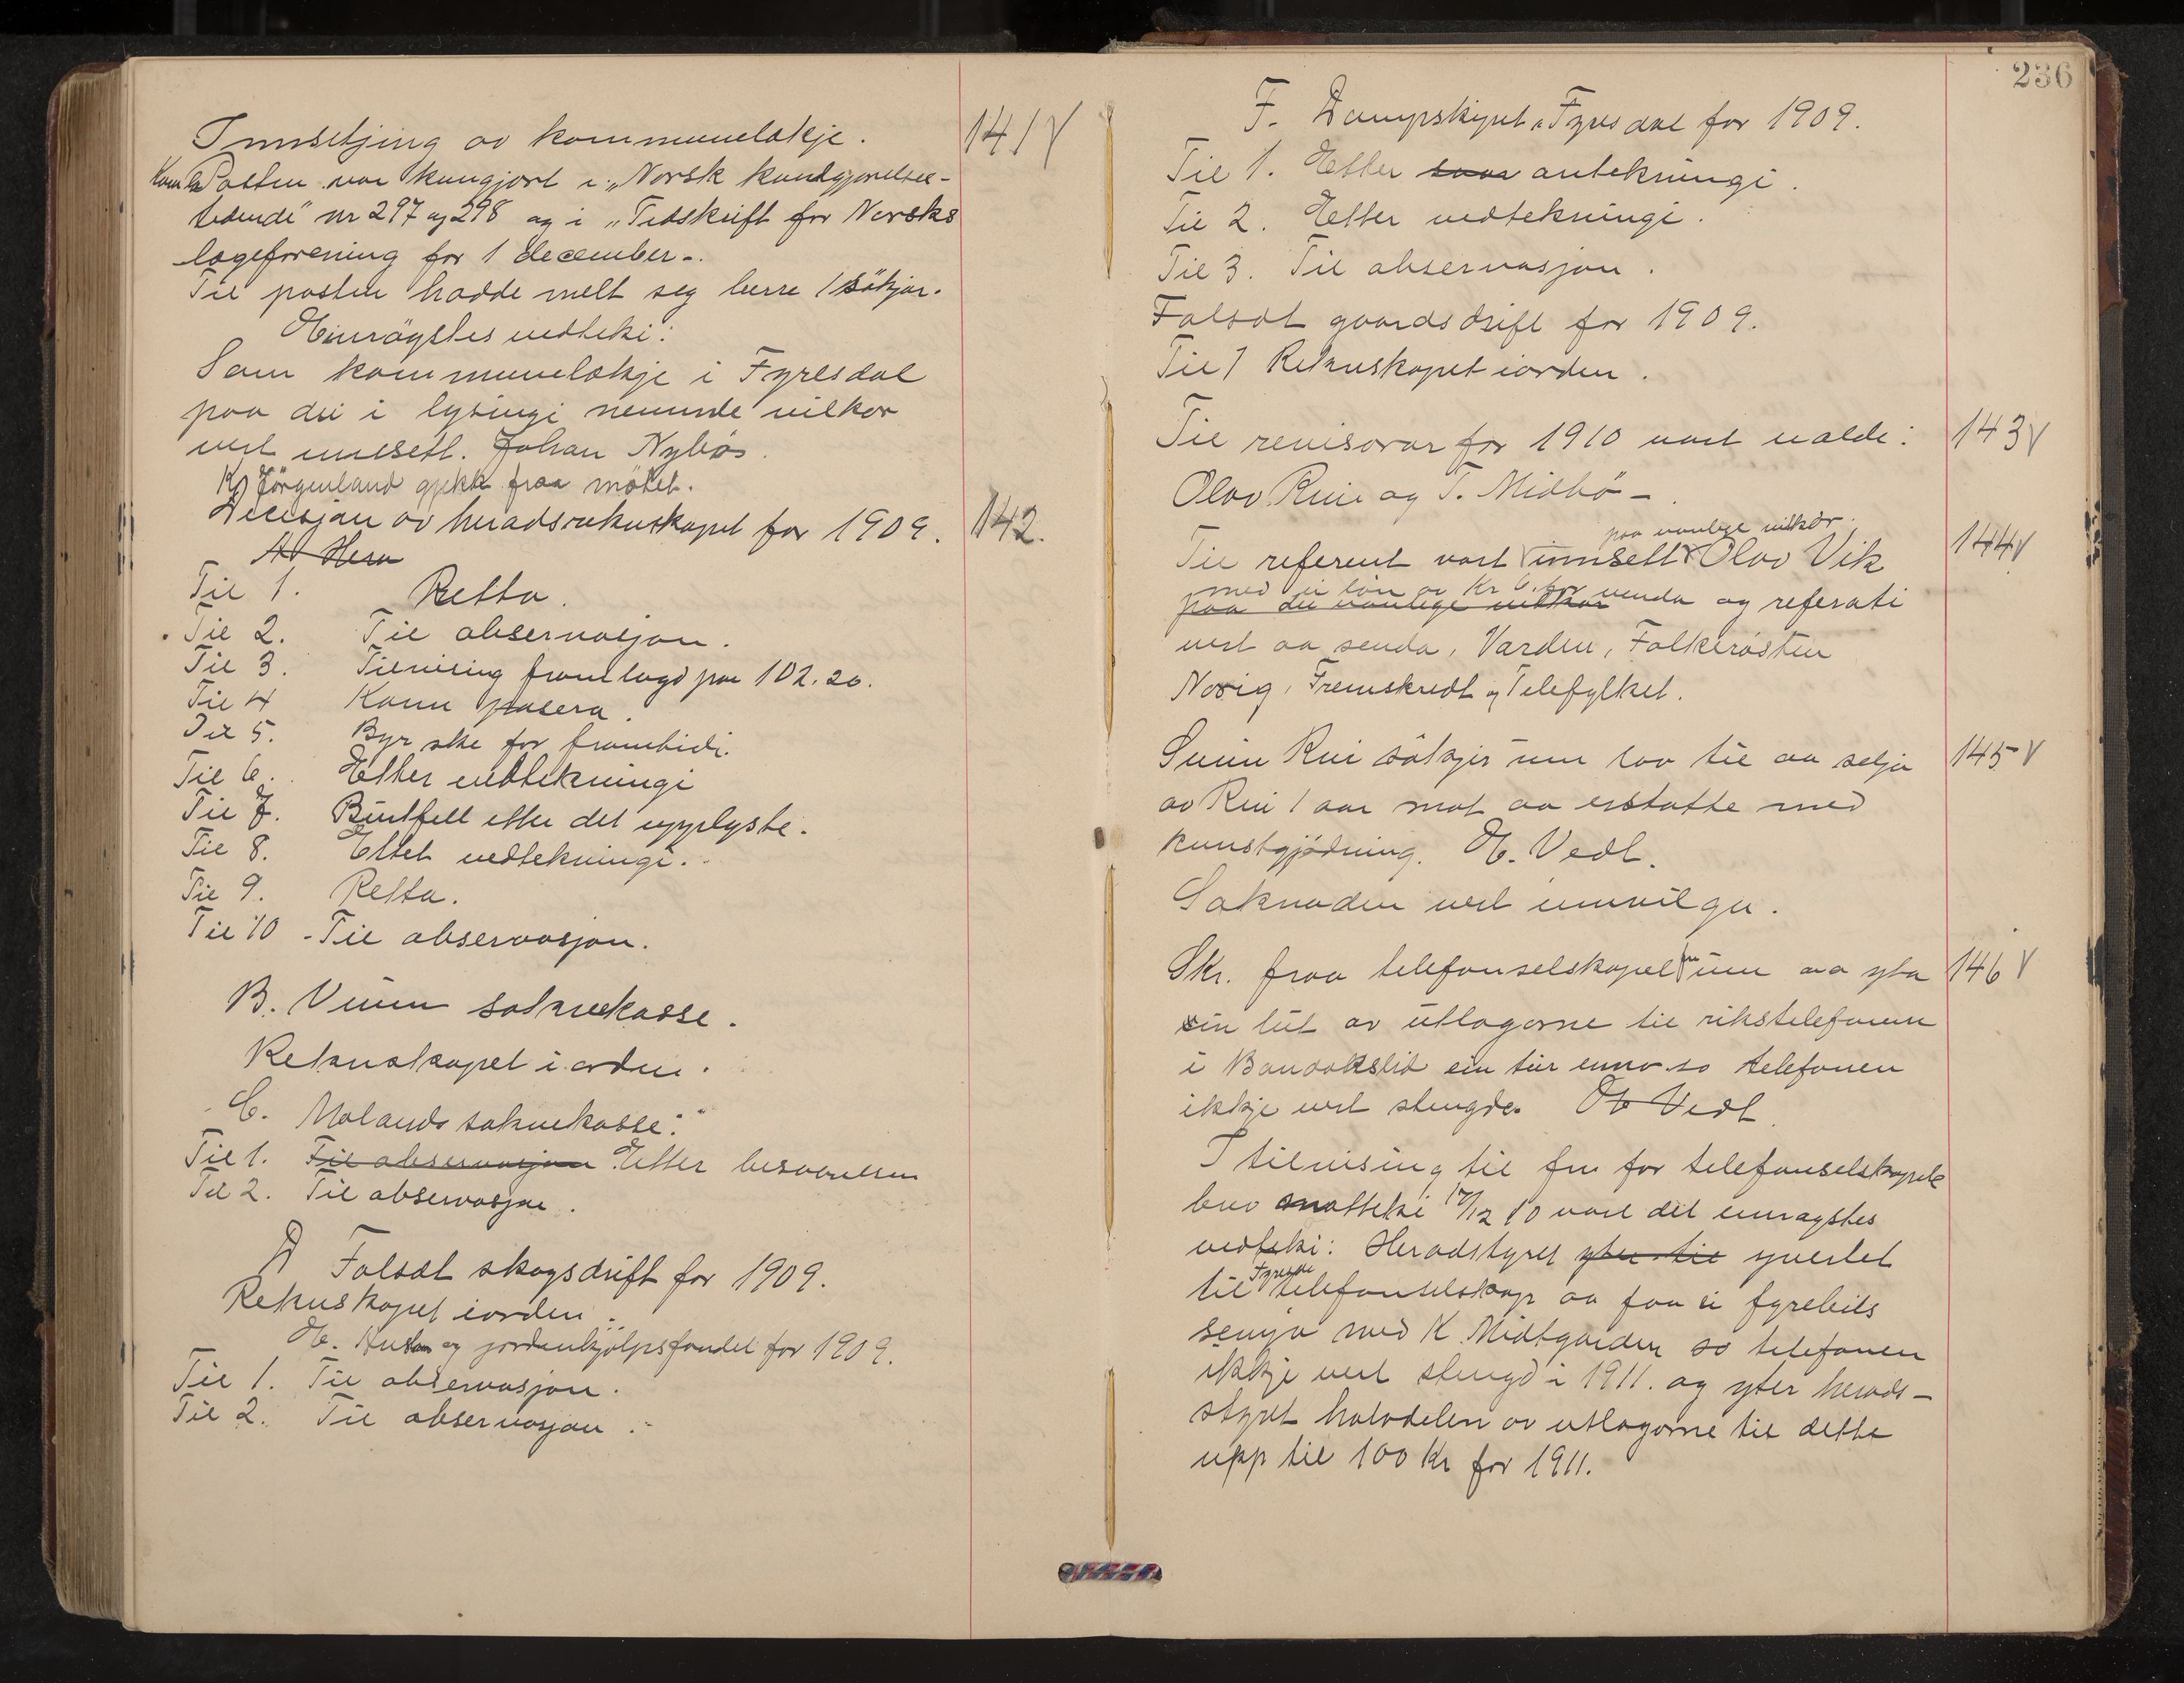 Innsetjing av kommunelækje. 141 V
Posten var kungjort i „Norsk kundgjørelses-
tidende" nr 297 og 298 og i „Tidskrift for Norsks
lægeforening for 1 december-.
Til posten hadde melt seg berre 1 sökjar.
Einrögstes vedteki:
Som kommunelækje i Fyresdal
paa dei i lysingi nemnde vilkor
vert innsett. Johan Nybös.
K. Jörgenland gjekk fraa mötet.
Decisjon av heradsrekneskapet for 1909. 142.
Av Hera
Til 1. Retta.
Til 2. Til observasjon.
Til 3. Tilvising framlagd paa 102.20.
Til 4 Kann pasera.
Til 5. Byr ske for frambidi.
Til 6. Etter vedtekningi
Til 7. Burtfell etter det upplyste.
Til 8. Etter vedtekningi.
Til 9. Retta.
Til 10 - Til observasjon.
B. Veum soknekasse.
Rekneskapet i orden.
C. Molands soknekasse:
Til 1. Til observasjon Etter besvarelsen
Til 2. Til observasjon.
D Folsæt skogsdrift for 1909.
Rekneskapet i orden.
E. Hus og jordinnkjøpsfondet for 1909.
Til 1. Til observasjon.
Til 2. Til observasjon.
236
F. Dampskipet „Fyresdal for 1909.
Til 1. Etter svar antekningi.
Til 2. Etter vedtekningi.
Til 3. Til observasjon.
Folsæt gaardsdrift for 1909.
Til 1 Rekneskapet i orden.
Til revisorar for 1910 vart valde: 143 V
Olav Rui og T. Midbö -
paa vanlege vilkör.
Til referent vart innsett Olav Vik 144 V
med ei lön av Kr 6. for
paa dei vanlege vilkaar venda og referati
vert aa senda, Varden, Folkerösten
Norig, Fremskridt og Telefylket.
Svein Rui sökjer um lov til aa selja 145 V
av Rui 1 aar mot aa erstatte med
kunstgjödning. E. Vedt.
Söknaden vert innvilga.
Skr. fraa telefonselskapet um aa yta 146 V
sin lut av utlagorne til rikstelefonen
i Bandakslid ein tur enno so telefonen
ikkje vert stengde. E Vedt
I tilvising til fm for telefonselskapets
brev motteki 17/12 10 vart det einragstes
vedteki: Heradstyret yter til yverlet
til Fyresdal telefonselskap aa faa ei fyrebils
semja med K. Midtgarden so telefonen
ikkje vert stengd i 1911. og yter herads-
styret halvdelen av utlagorne til dette
upp til 100 Kr for 1911.